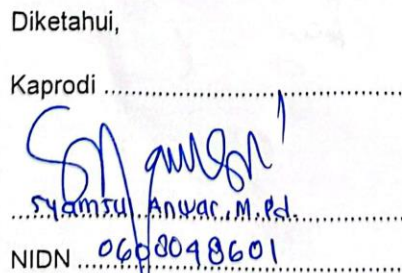 Diketahui,
Kaprodi ........................................
Syamsul Anwar, M.Pd.
NIDN 0608048601